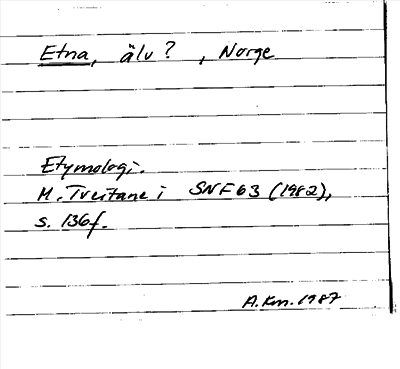 Etna, älv? , Norge
Etymologi.
M. Tveitane i SNF 63 (1982),
s. 136f.
A.Km. 1987